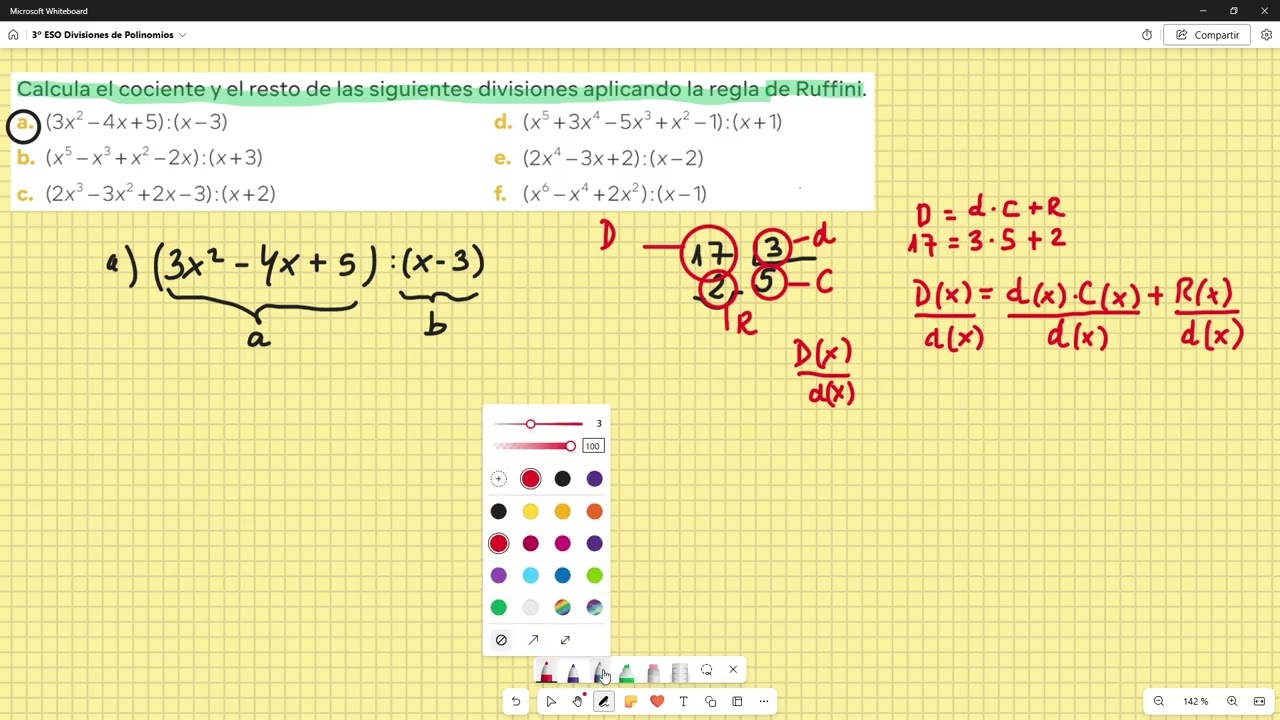 Microsoft Whiteboard
3º ESO Divisiones de Polinomios
Compartir
Calcula el cociente y el resto de las siguientes divisiones aplicando la regla de Ruffini.
a. (3x² − 4x + 5) : (x − 3)
d. (x⁵ + 3x⁴ − 5x³ + x² − 1) : (x + 1)
b. (x⁵ − x³ + x² − 2x) : (x + 3)
e. (2x⁴ − 3x + 2) : (x − 2)
c. (2x³ − 3x² + 2x − 3) : (x + 2)
f. (x⁶ − x⁴ + 2x²) : (x − 1)
a) (3x² − 4x + 5) : (x − 3)
a
b
D
17
3
d
2
5
C
R
D(x)
d(x)
D = d · C + R
17 = 3 · 5 + 2
D(x) = d(x) · C(x) + R(x)
d(x) d(x) d(x)
3
100
142 %